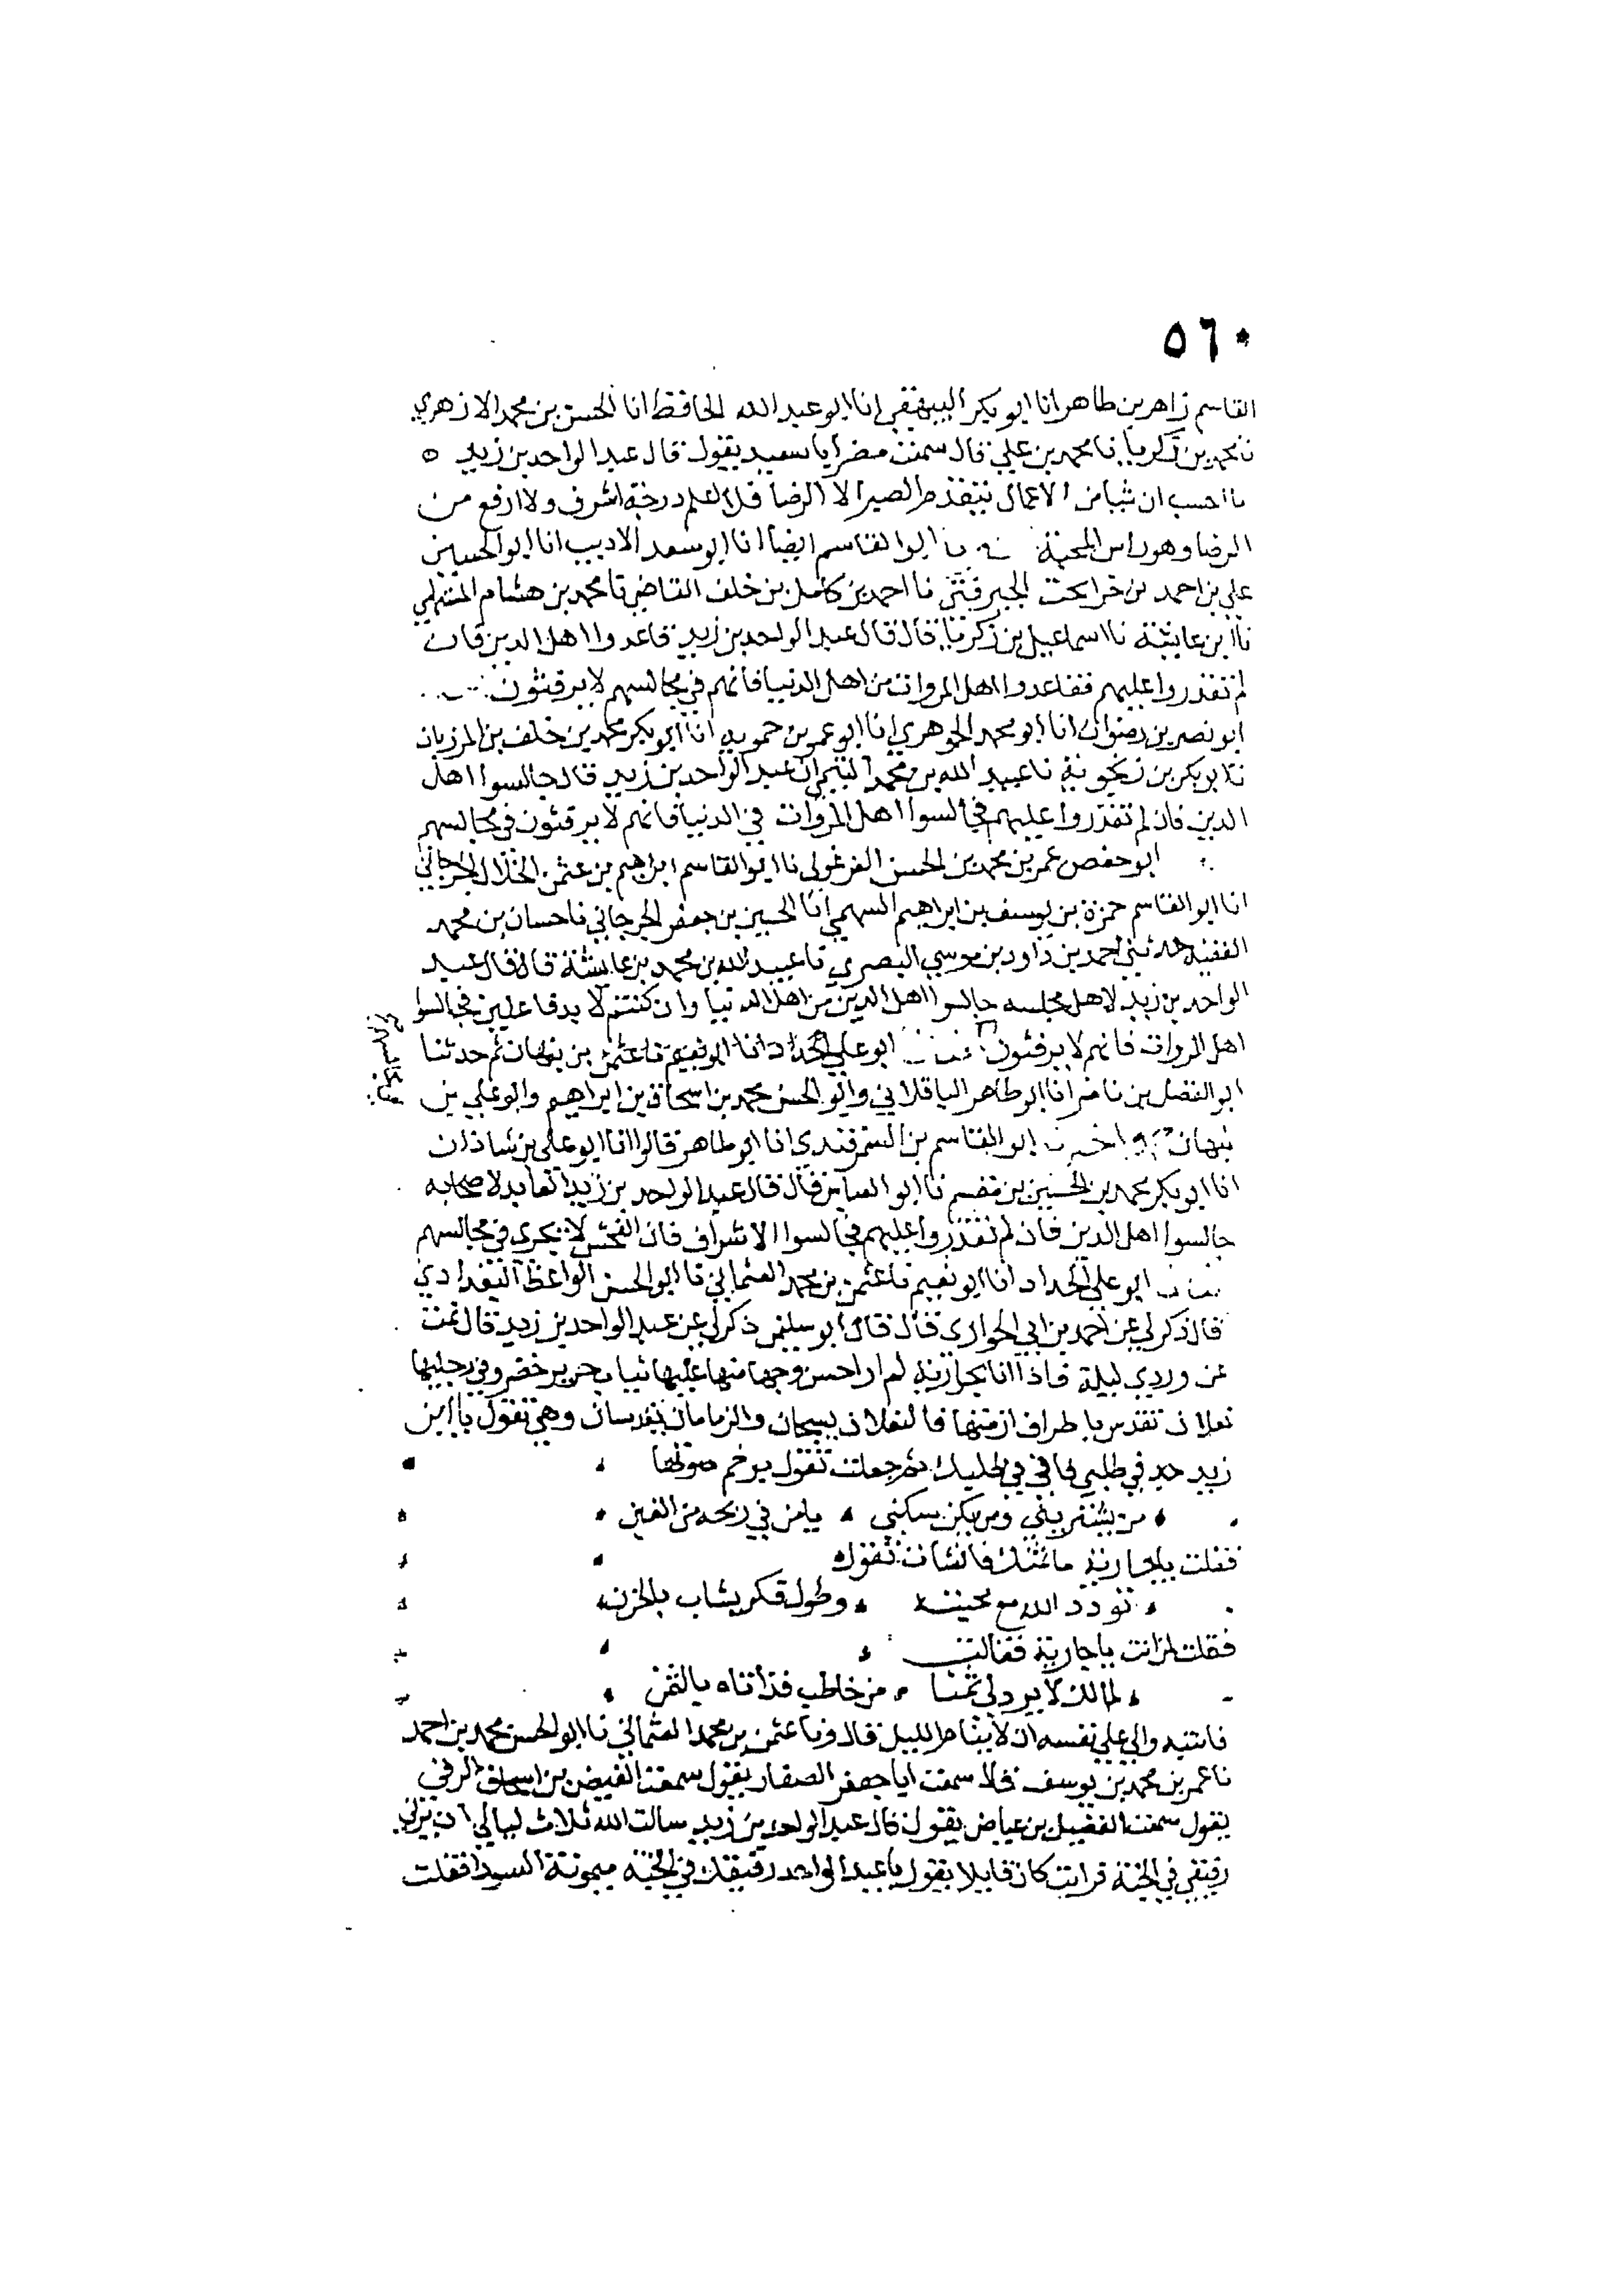 ٥٦٠
القاسم زاهر بن طاهر انا ابو بكر البيهقي انا ابو عبد الله الحافظ انا الحسن بن محمد الازهري
نا محمد بن زكريا نا محمد بن علي قال سمعت مضر ابا سعيد يقول قال عبد الواحد بن زيد ٥
ما احسب ان شيا من الاعمال يتقدم الصبر الا الرضا فلا اعلم درجة اشرف ولا ارفع من
الرضا وهو راس المحبة ابو القاسم ايضا انا ابو سعد الاديب انا ابو الحسين
علي بن احمد بن نا احمد بن كامل بن خلف القاضي نا محمد بن هشام المستملي
نا ابن عايشة نا اسماعيل بن زكريا قال قال عبد الواحد بن زيد قاعدوا اهل الدين فان
لم تقدروا عليهم فقاعدوا اهل المروات من اهل الدنيا فانهم في مجالسهم لا يرفثون
ابو نصر بن رضوان انا ابو محمد الجوهري انا ابو عمر بن حمويه انا ابو بكر محمد بن خلف بن المرزبان
نا ابو بكر بن زنجوية نا عبيد الله بن محمد التيمي ان عبد الواحد بن زيد قال جالسوا اهل
الدين فان لم تقدروا عليهم فجالسوا اهل المروات في الدنيا فانهم لا يرفثون في مجالسهم
ابو حفص عمر بن محمد بن الحسن الفرغولي نا ابو القاسم ابراهيم بن عثمن الخلال الجرجاني
انا ابو القاسم حمزة بن يوسف بن ابراهيم السهمي انا الحسين بن جعفر الجرجاني نا حسان بن محمد
الفقيه حدثني احمد بن داود بن موسى البصري نا عبيد الله بن محمد بن عايشة قال قال عبد
الواحد بن زيد لاهل مجلسه جالسوا اهل الدين من اهل الدنيا وان كنتم لا بد فاعلين فجالسوا
اهل المروات فانهم لا يرفثون ابو علي الحداد انا ابو نعيم نا عثمن بن نبهان ثم حدثنا
ابو الفضل بن ناصر انا ابو طاهر الباقلاني وابو الحسن محمد بن اسحاق بن ابراهيم وابو علي بن
نبهان ابو القاسم بن السمرقندي انا ابو طاهر قالوا انا ابو علي بن شاذان
انا ابو بكر محمد بن الحسين بن مقسم نا ابو العباس قال قال عبد الواحد بن زيد العابد لاصحابه
جالسوا اهل الدين فان لم تقدروا عليهم فجالسوا الاشراف فان الفحش لا يجري في مجالسهم
ابو علي الحداد انا ابو نعيم نا عثمن بن محمد العثماني نا ابو الحسن الواعظ البغدادي
قال ذكر لي عن احمد بن ابي الحواري قال قال ابو سليمن ذكر لي عن عبد الواحد بن زيد قال نمت
عن وردي ليلة فاذا انا بجارية لم ار احسن وجها منها عليها ثياب حرير خضر وفي رجليها
نعلان تقدس باطراف ازمتها فالنعلان يسبحان والزمامان يقدسان وهي تقول يا ابن
زيد جد في طلبي فاني في طلبك ثم جعلت تقول برخم صوتها
من يشتريني ومن يكن سكني يامن في ربحه من الغبن
فقلت يا جارية ما ثمنك فانشات تقول
تودد الله مع محبته وطول فكر يشاب بالحزن
فقلت لمن انت يا جارية فقالت
لمالك لا يرد لي ثمنا من خاطب قد اتاه بالثمن
فانتبه والى على نفسه ان لا ينام الليل قال ونا عثمن بن محمد العثماني نا ابو الحسن محمد بن احمد
نا عمر بن محمد بن يوسف قال سمعت ابا جعفر الصفار يقول سمعت الفيض بن اسحاق الرقي
يقول سمعت الفضيل بن عياض يقول قال عبد الواحد بن زيد سالت الله ثلاث ليالي ان يريني
رفيقي في الجنة فرايت كان قايلا يقول يا عبد الواحد رفيقك في الجنة ميمونة السودا فقلت